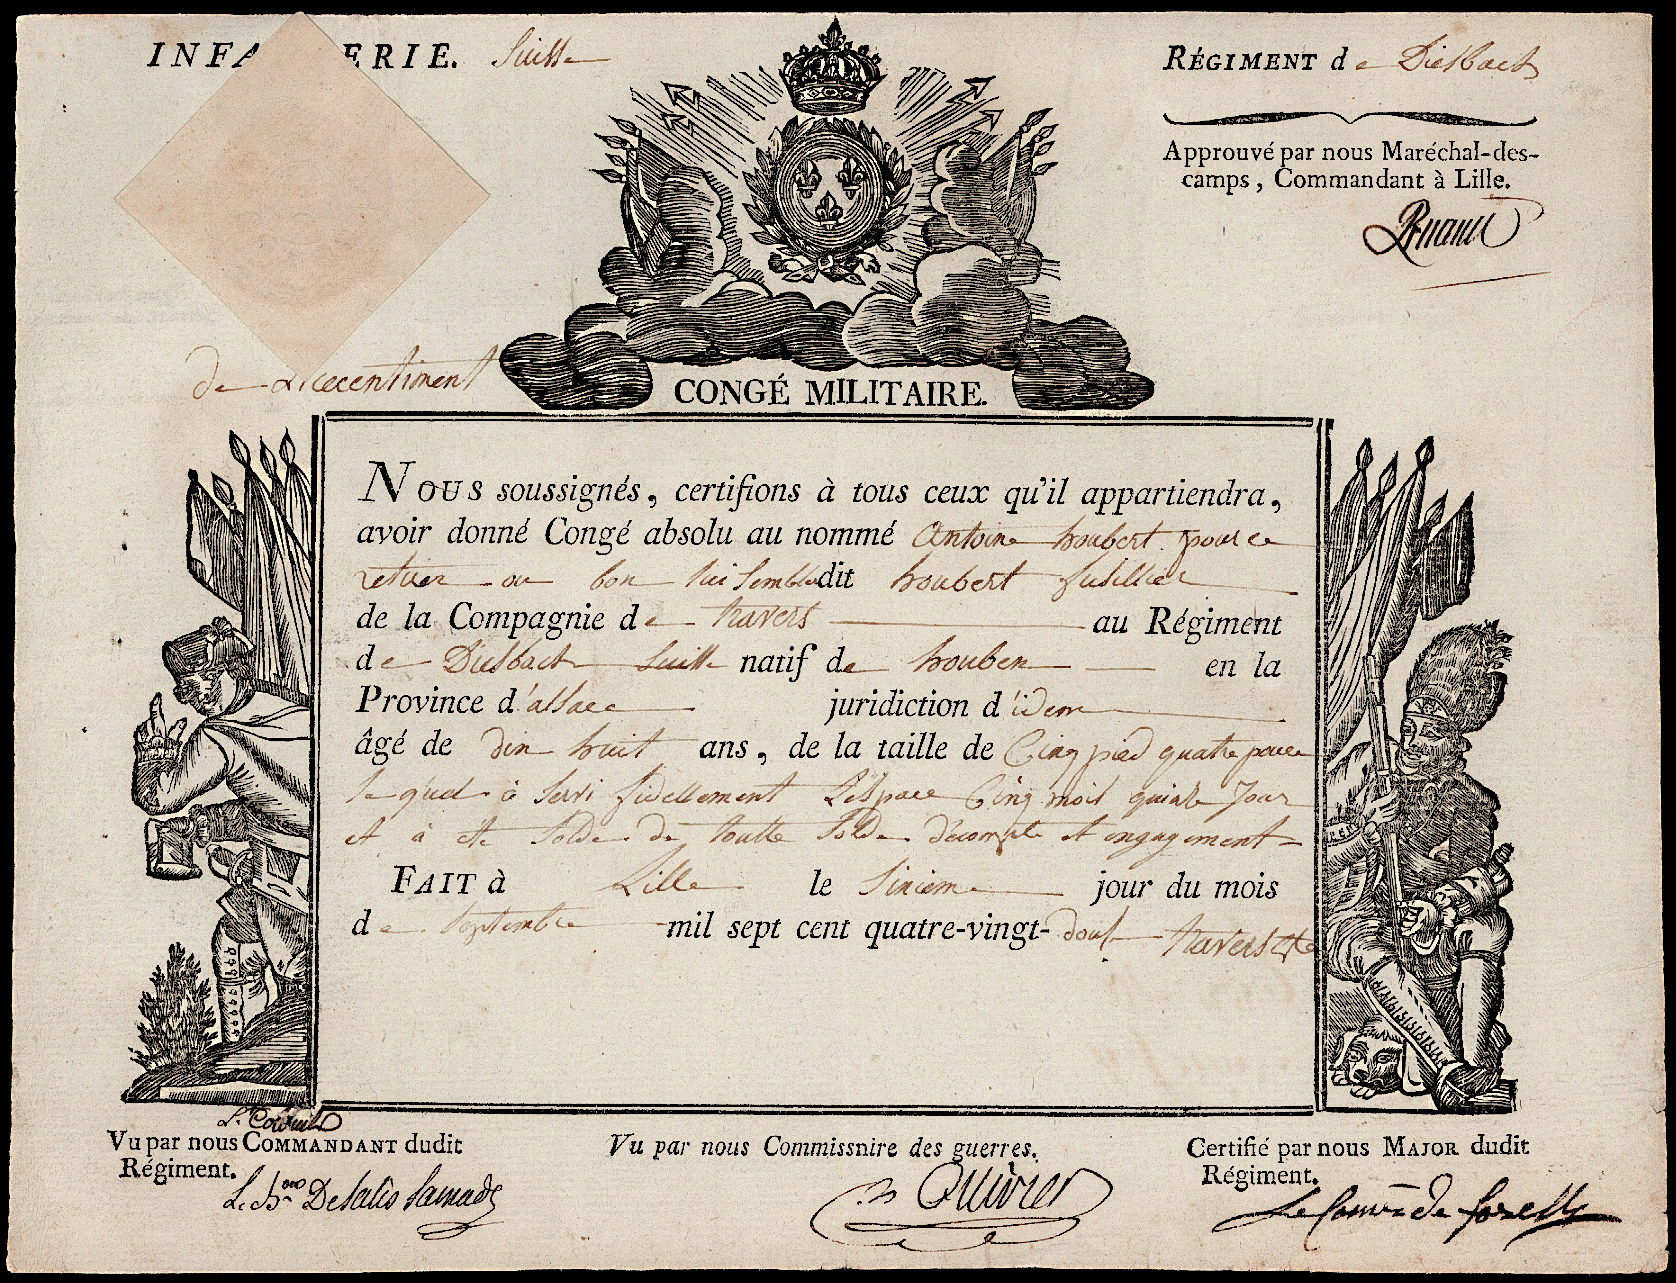 INFA ERIE. Suisse
RÉGIMENT de Diesbach
Approuvé par nous Maréchal-des-
camps, Commandant à Lille.
de
CONGÉ MILITAIRE.
NOUS soussignés, certifions à tous ceux qu'il appartiendra,
avoir donné Congé absolu au nommé Antoine houbert pour ce
retirer ou bon lui semble dit houbert fusillier
de la Compagnie de travers au Régiment
de Diesbach Suisse natif de houben en la
Province d'alsace juridiction d'idem
âgé de dix huit ans, de la taille de Cinq pied quatre pouce
le quel à servi fidellement L'espace Cinq mois quinze Jour
et à ete solde de toutte solde décompte et engagement
FAIT à Lille le Sixieme jour du mois
de Septembre mil sept cent quatre-vingt-douse travers
Vu par nous COMMANDANT dudit
Régiment.
Le Bon Desalis Samade
Vu par nous Commissnire des guerres.
Ollivier
Certifié par nous MAJOR dudit
Régiment.
Le de